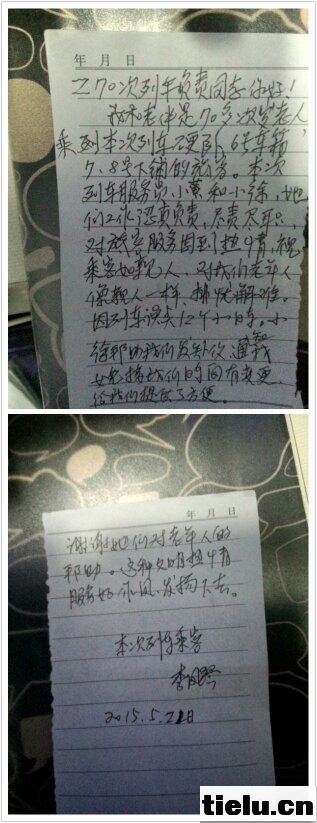 年 月 日
Z70次列车负责同志你好！
我和老伴是70多岁老人
乘到本次列车硬卧6号车箱
7.8号下铺的旅客。本次
列车服务员,小 和小徐,她
们工作认真负责,尽责尽职,
对旅客服务周到热情,视
乘客如亲人,对我们老年人
像亲人一样,排忧解难。
因列车误点12个小时。小
徐帮助我们发短信通知我
女儿接我们时间有变更,
给我们提供了方便。
年 月 日
谢谢她们对老年人的
帮助。这种文明热情
服务好作风发扬下去。
本次列车乘客
李
2015.5.21日
tielu.cn